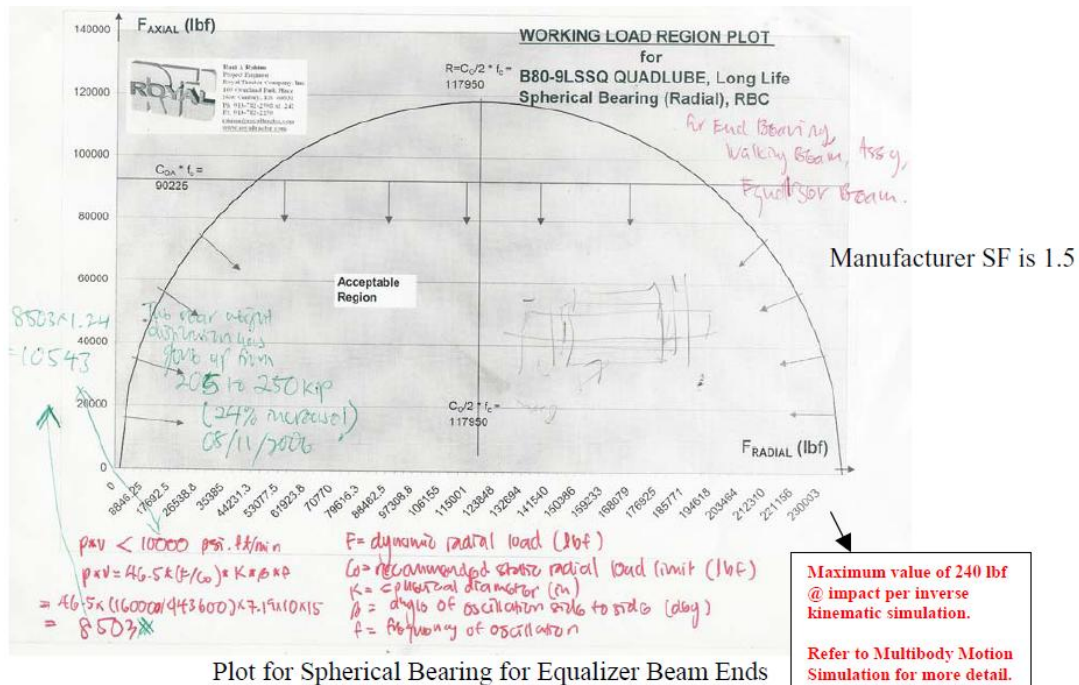 F_AXIAL (lbf)
140000
120000
100000
80000
60000
40000
20000
0
ROYAL
Project Engineer
WORKING LOAD REGION PLOT
for
B80-9LSSQ QUADLUBE, Long Life
Spherical Bearing (Radial), RBC
R=C₀/2 * f_c =
117950
C_OA * f_c =
90225
for End Bearing,
Walking Beam, Assy,
Equalizer Beam.
Manufacturer SF is 1.5
Acceptable
Region
8503×1.24
=10543
The rear weight
distribution has
gone up from
205 to 250 kip
(24% increase!)
08/11/2006
C₀/2 * f_c =
117950
F_RADIAL (lbf)
0
8846.25
17692.5
26538.8
35385
44231.3
53077.5
61923.8
70770
79616.3
88462.5
97308.8
106155
115001
123848
132694
141540
150386
159233
168079
176925
185771
194618
203464
212310
221156
230003
p×v < 10000 psi.ft/min
p×v = 46.5×(F/C₀)×K×β×f
= 46.5×(160000/943600)×7.19×10×15
= 8503
F= dynamic radial load (lbf)
C₀= recommended static radial load limit (lbf)
K= spherical diameter (in)
β= angle of oscillation side to side (deg)
f= frequency of oscillation
Maximum value of 240 lbf
@ impact per inverse
kinematic simulation.
Refer to Multibody Motion
Simulation for more detail.
Plot for Spherical Bearing for Equalizer Beam Ends